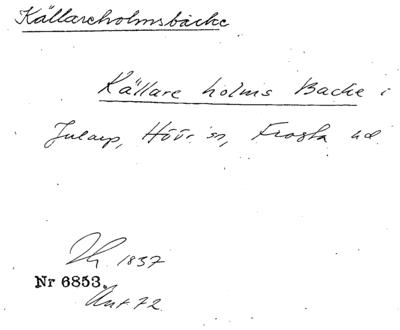 Källareholmsbacke
Källare holms Backe i
Jularp, Höör sn, Frosta hd
1837
Nr 6853.
Ant 72.